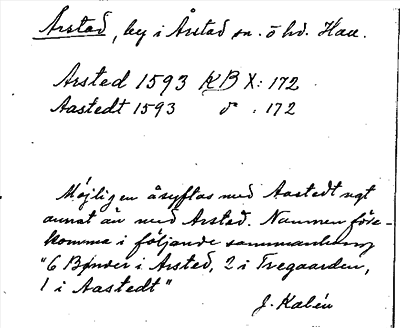 Årstad, by i Årstad sn. o hd. Hall.
Arsted 1593 KB X: 172
Aastedt 1593 do : 172
Möjligen åsyftas med Aastedt ngt
annat än med Arsted. Namnen före-
komma i följande sammanhang
"6 Bønder i Arsted, 2 i Tregaarden,
1 i Aastedt"
J. Kalén